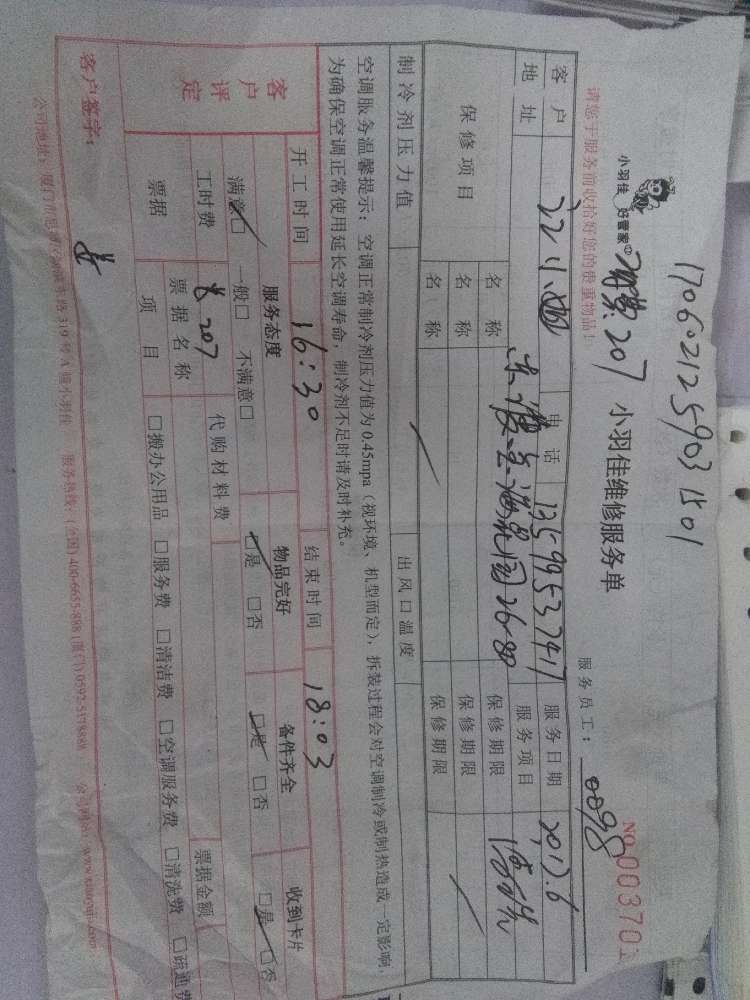 1706021259031501
小羽佳 好管家
207
小羽佳维修服务单
NO.003701
请您于服务前收拾好您的贵重物品！
服务员工：0098
客户 小姐 电话 13599537417 服务日期 2017.6
地址 26-80 服务项目 清洗
保修项目 名称 保修期限
名称 保修期限
名称 保修期限
制冷剂压力值 出风口温度
空调服务温馨提示：空调正常制冷剂压力值为0.45mpa（视环境、机型而定），拆装过程会对空调制冷或制热造成一定影响，
为确保空调正常使用延长空调寿命，制冷剂不足时请及时补充。
开工时间 16:30 结束时间 18:03
客户评定 服务态度 物品完好 备件齐全 收到卡片
满意□ 一般□ 不满意□ □是 □否 □是 □否 □是 □否
工时费 207 代购材料费
票据 票据名称 票据金额
项目 □搬办公用品 □服务费 □清洁费 □空调服务费 □清洗费 □疏通费
客户签字：
公司地址： 319号A 小羽佳 服务热线：(全国) 400-6655-888 (厦门) 0592-5178888